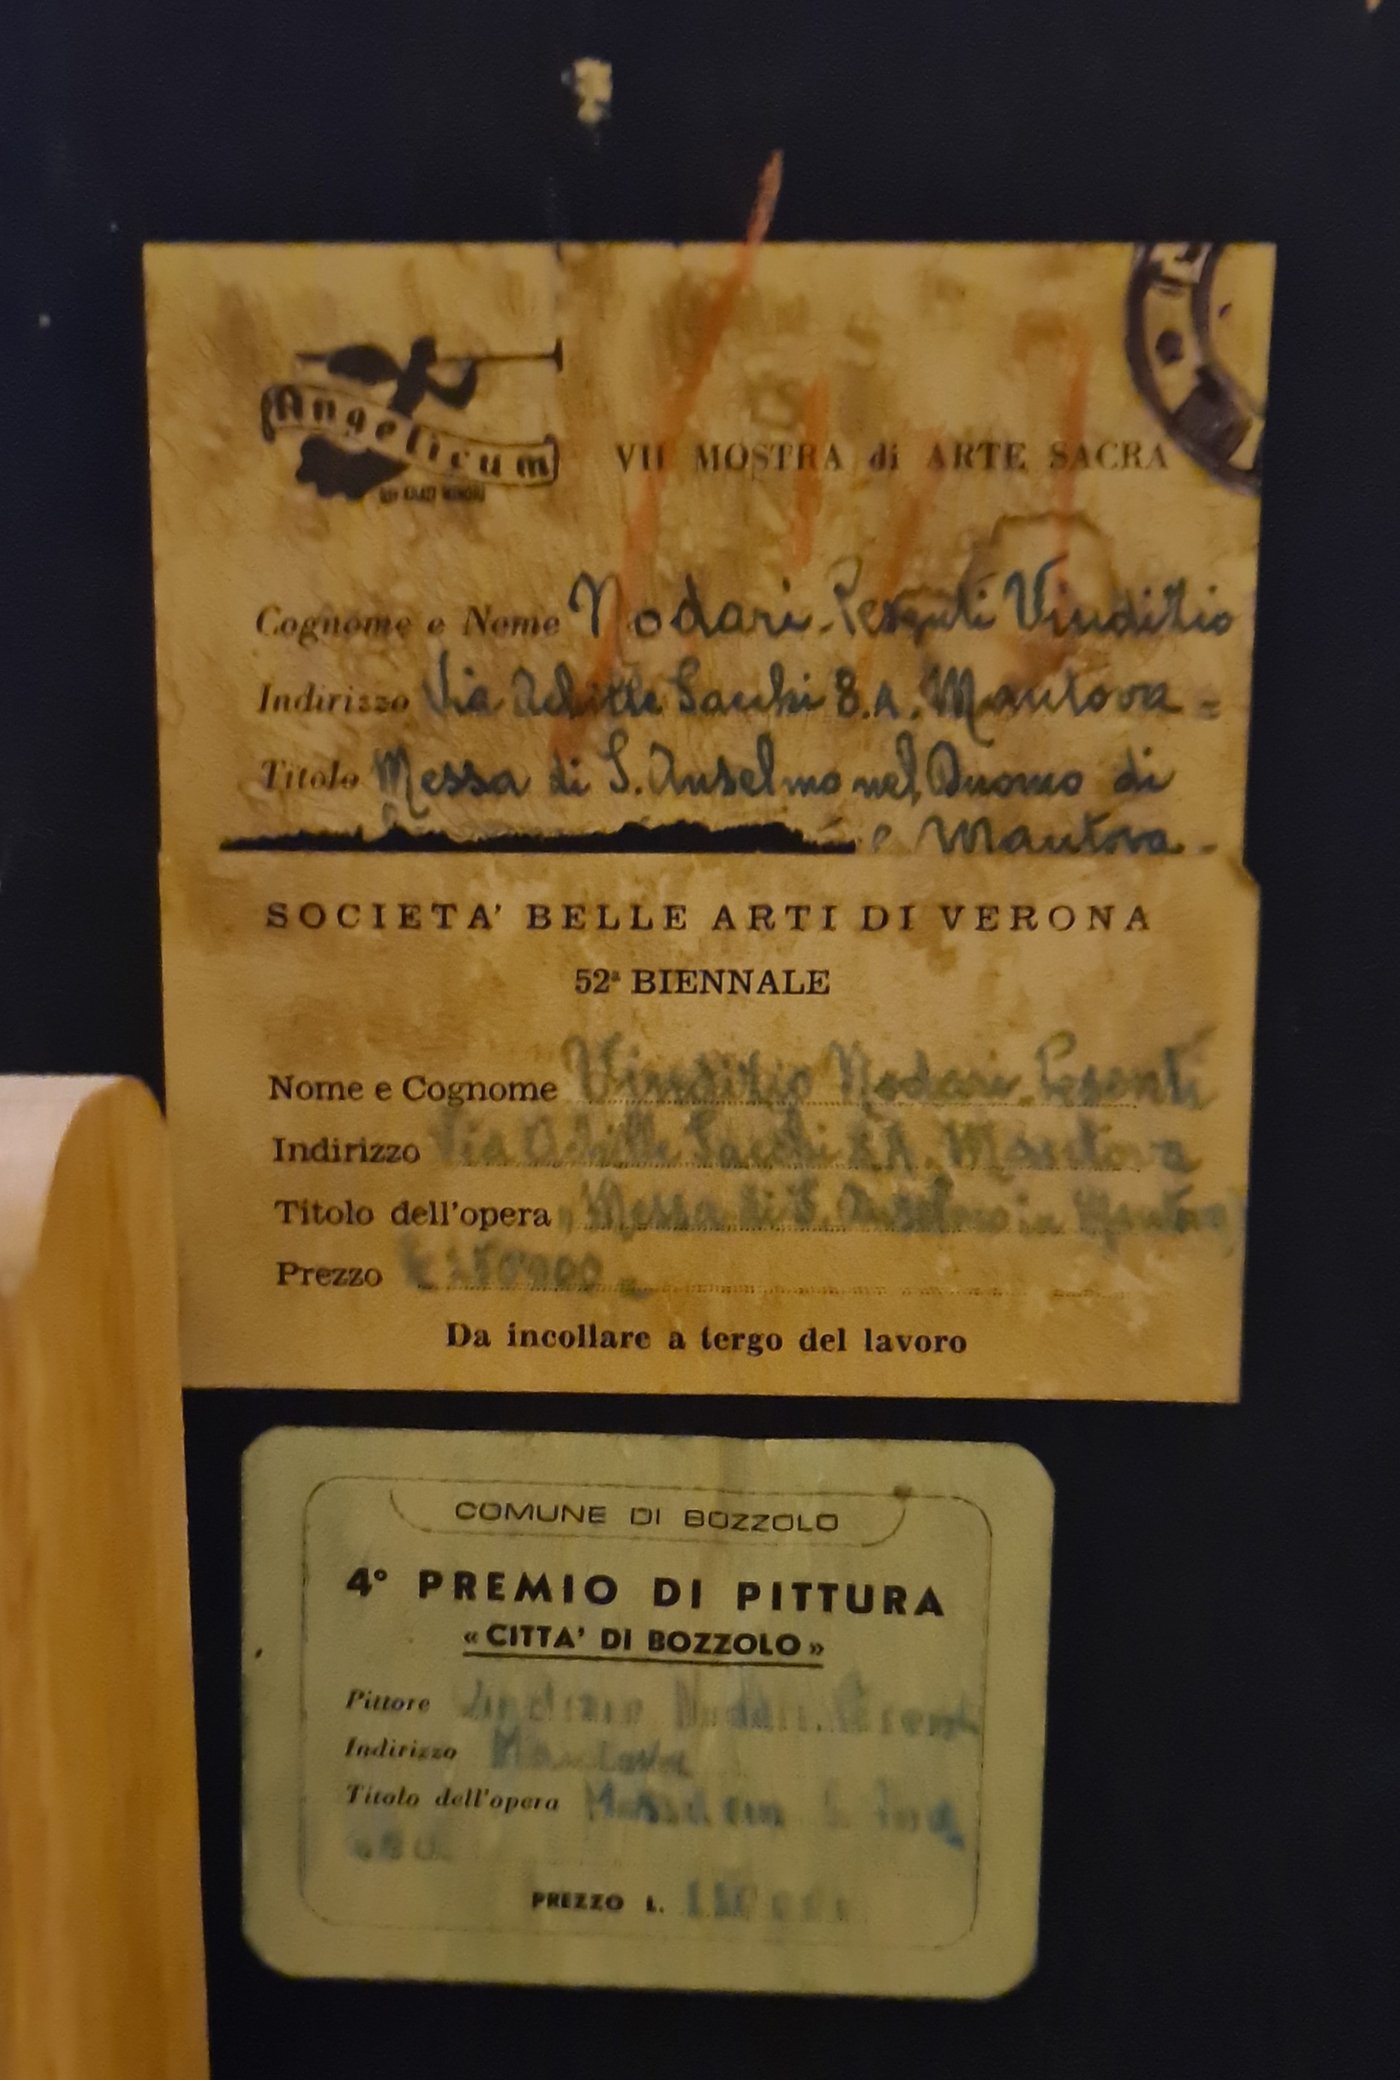 Angelicum
DEI FRATI MINORI
VII MOSTRA di ARTE SACRA
Cognome e Nome Nodari Pesenti Vindizio
Indirizzo Via Achille Sacchi 8.A. Mantova =
Titolo Messa di S. Anselmo nel Duomo di
Mantova -
SOCIETA' BELLE ARTI DI VERONA
52ª BIENNALE
Nome e Cognome Vindizio Nodari Pesenti
Indirizzo Via Achille Sacchi 8A. Mantova
Titolo dell'opera Messa di S. Anselmo in Mantova
Prezzo
Da incollare a tergo del lavoro
COMUNE DI BOZZOLO
4° PREMIO DI PITTURA
« CITTA' DI BOZZOLO »
Pittore Vindizio Nodari Pesenti
Indirizzo Mantova
Titolo dell'opera
PREZZO L.